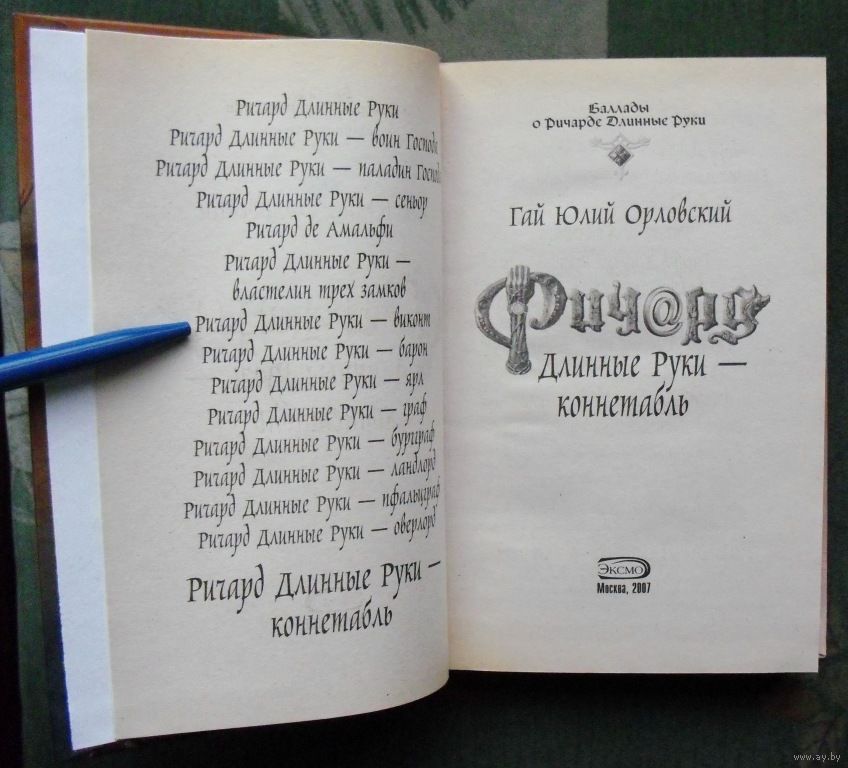 Ричард Длинные Руки
Ричард Длинные Руки — воин Господа
Ричард Длинные Руки — паладин Господа
Ричард Длинные Руки — сеньор
Ричард де Амальфи
Ричард Длинные Руки —
властелин трех замков
Ричард Длинные Руки — виконт
Ричард Длинные Руки — барон
Ричард Длинные Руки — ярл
Ричард Длинные Руки — граф
Ричард Длинные Руки — бургграф
Ричард Длинные Руки — ландлорд
Ричард Длинные Руки — пфальцграф
Ричард Длинные Руки — оверлорд
Ричард Длинные Руки —
коннетабль
Баллады
о Ричарде Длинные Руки
Гай Юлий Орловский
Рич@рд
Длинные Руки —
коннетабль
ЭКСМО
Москва, 2007
www.ay.by